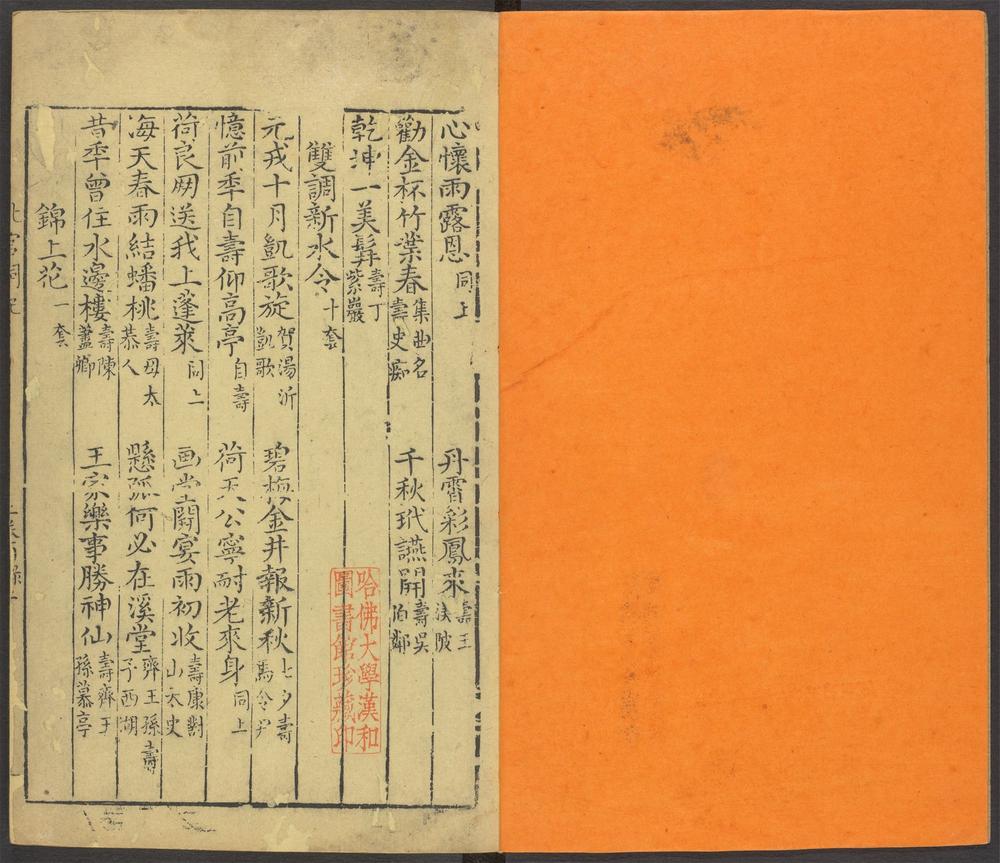 心懷雨露恩同上 丹霄彩鳳來壽王渼陂
勸金杯竹葉春集曲名壽史痴 千秋玳讌開壽吳伯鄰
乾坤一美髯壽丁紫巖
雙調新水令十套
元戎十月凱歌旋賀湯沂凱歌 碧梅金井報新秋七夕壽馬令尹
憶前年自壽仰高亭自壽 荷天公寧耐老來身同上
荷良朋送我上蓬萊同上 画堂開宴雨初收壽康對山太史
海天春雨結蟠桃壽母太恭人 懸弧何必在溪堂齊王孫壽予西湖
昔年曾住水邊樓壽陳藎卿 王家樂事勝神仙壽齊王孫慕亭
錦上花一套
北宮詞紀
哈佛大學漢和
圖書館珍藏印